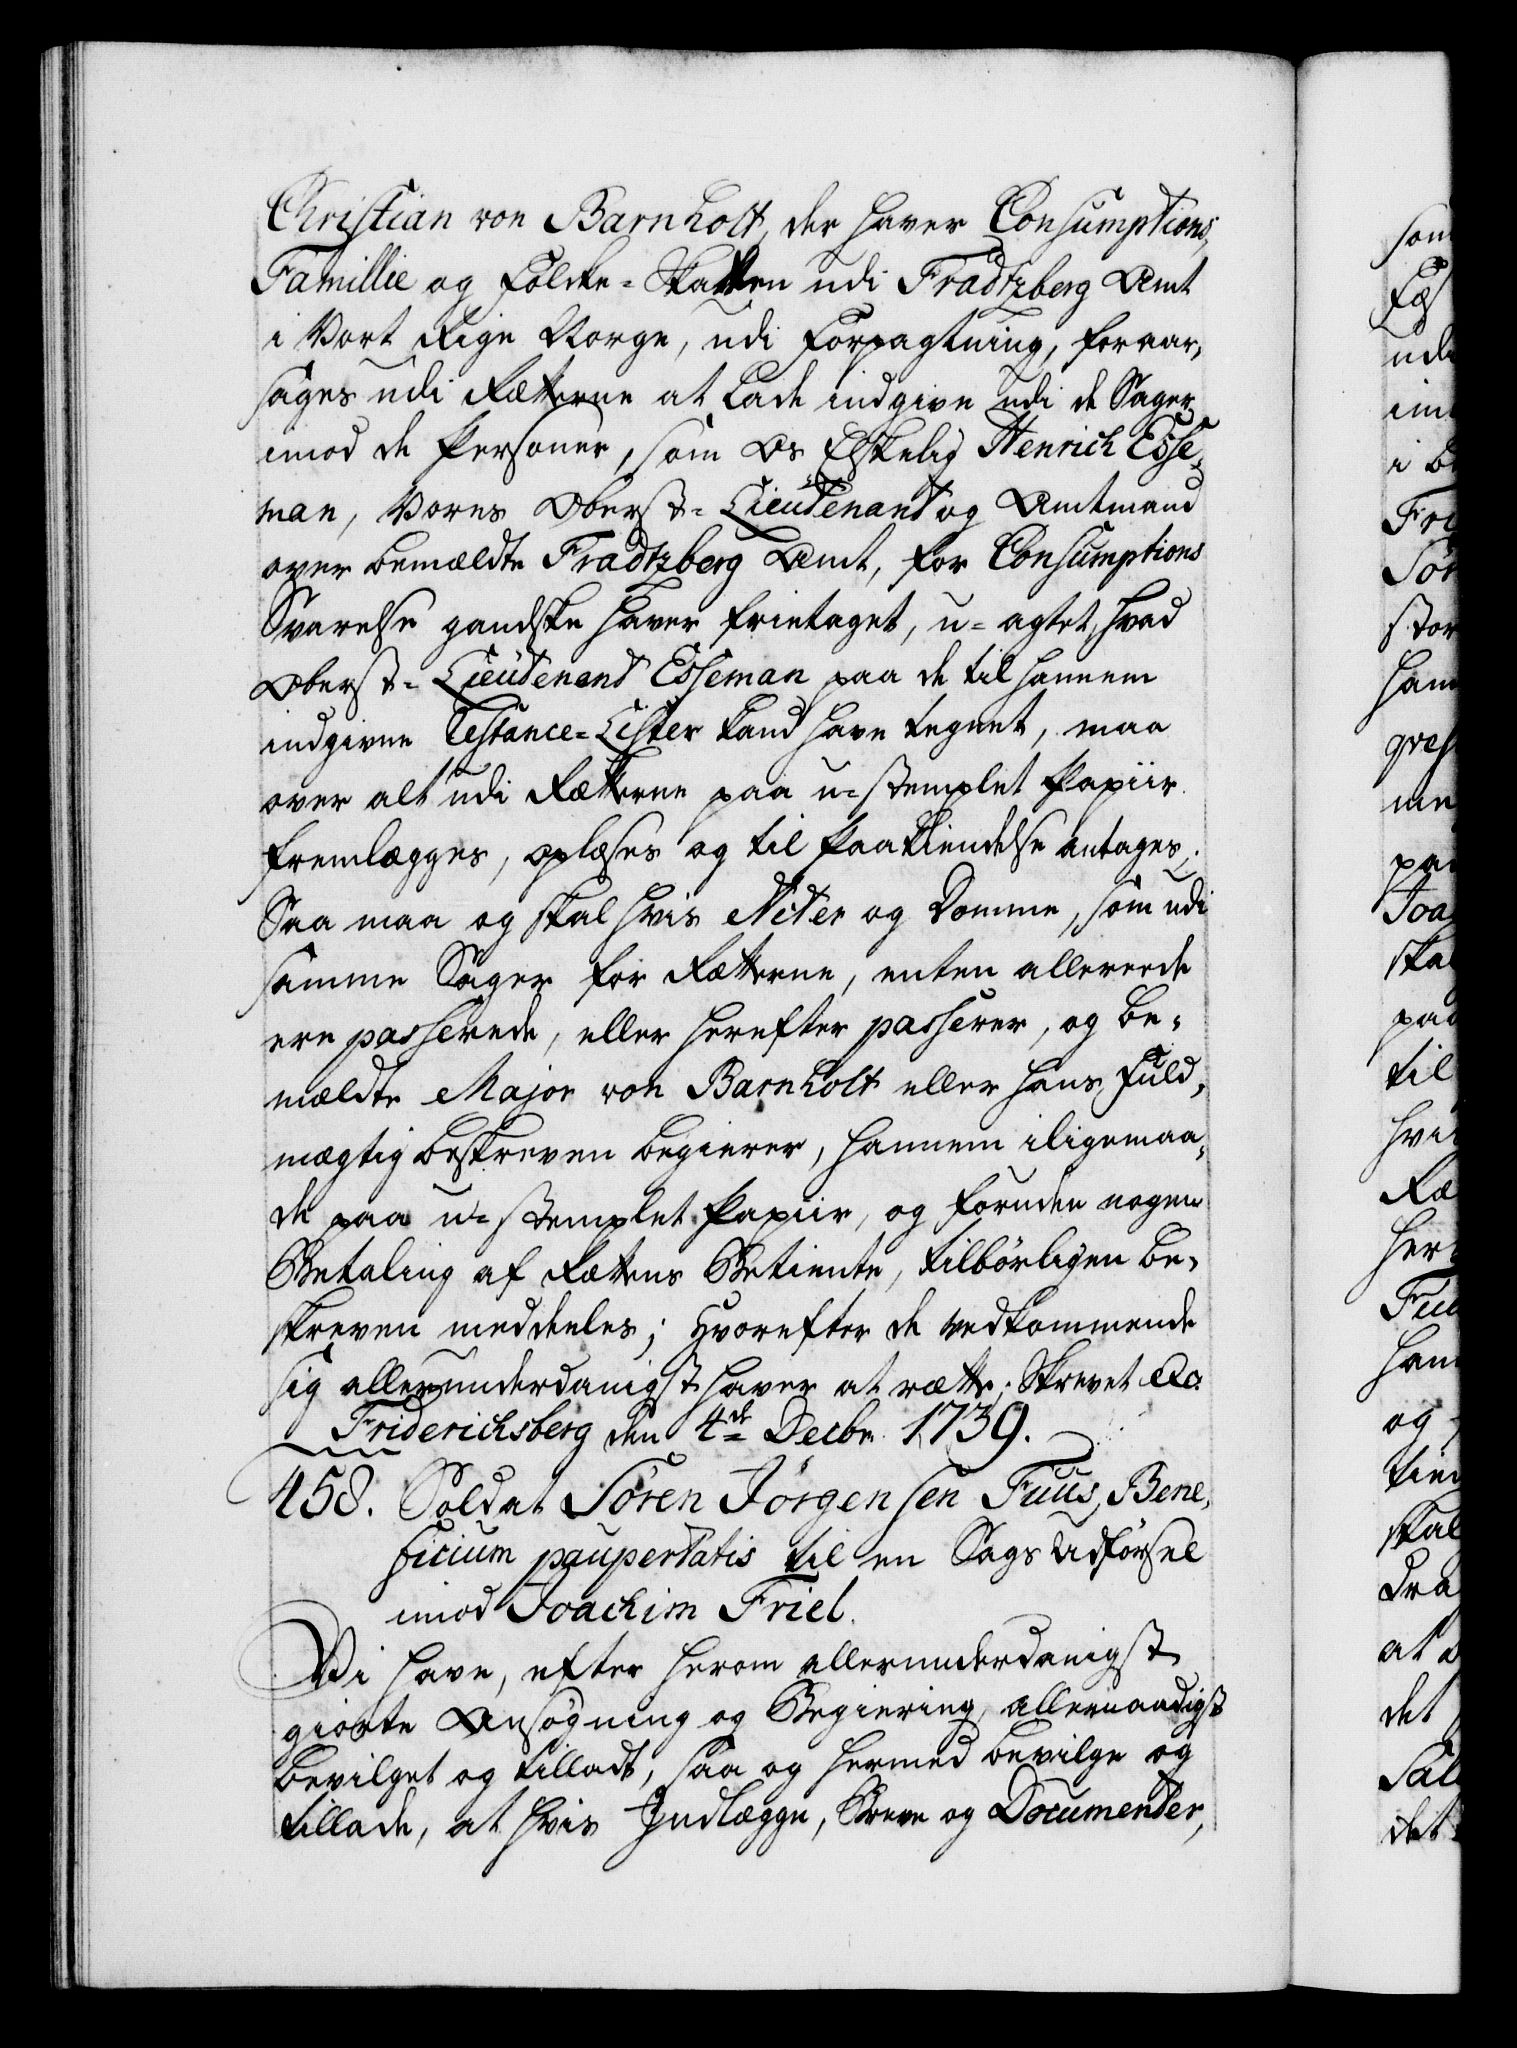 Christian von Barnholt, der haver Consumptions,
Famillie og Folcke-Skatten udi Fradtzberg Amt
i Vort Rige Norge, udi Forpagtning, foraar,
sages udi Rætterne at lade indgive udi de Sager
imod de Personer, som Os Elskelig Henrich Esse,
man, Vores Oberst-Lieutenant og Amtmand
over bemældte Fradtzberg Amt, for Consumptions
Svarelse gandske haver frietaget, u-agtet, hvad
Oberst-Lieutenant Esseman paa de til hannem
indgivne Restance-Lister kand have tegnet, maa
over alt udi Rætterne paa u-stemplet Papiir
fremlægges, oplæses og til Paakiendelse antages;
Saa maa og skal hvis Acter og Domme, som udi
samme Sager for Rætterne, enten allereede
ere passerede, eller herefter passerer, og be-
mældte Major von Barnholt eller hans Fuld,
mægtig beskreven begierer, hannem iligemaa,
de paa u-stemplet Papiir, og foruden nogen
Betaling af Rættens Betiente, tilbörligen be,
skreven meddeeles; Hvorefter de vedkommende
sig allerunderdanigst haver at rætte. Skrevet &c.
Friderichsberg den 4de Decbr. 1739.
458. Soldat Sören Jörgensen Fuus, Bene,
ficium paupertatis til en Sags Udförsel
imod Joachim Friel.
Vi have, efter herom allerunderdanigst
giorte Ansögning og Begiering, allernaadigst
bevilget og tilladt, saa og hermed bevilge og
tillade, at hvis Indlægge, Breve og Documenter,